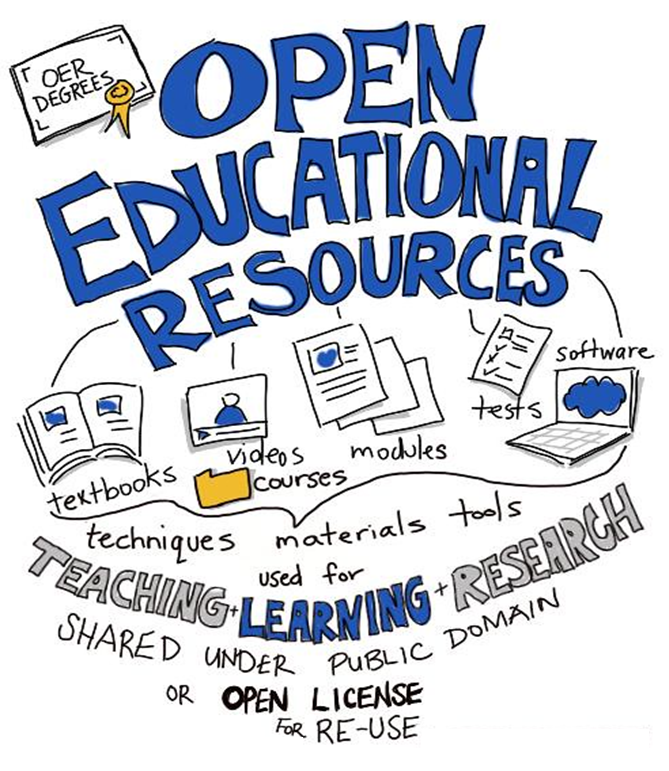 OER
DEGREES
OPEN
EDUCATIONAL
RESOURCES
software
tests
modules
videos
textbooks
courses
techniques materials tools
used for
TEACHING + LEARNING + RESEARCH
SHARED UNDER PUBLIC DOMAIN
OR OPEN LICENSE
FOR RE-USE